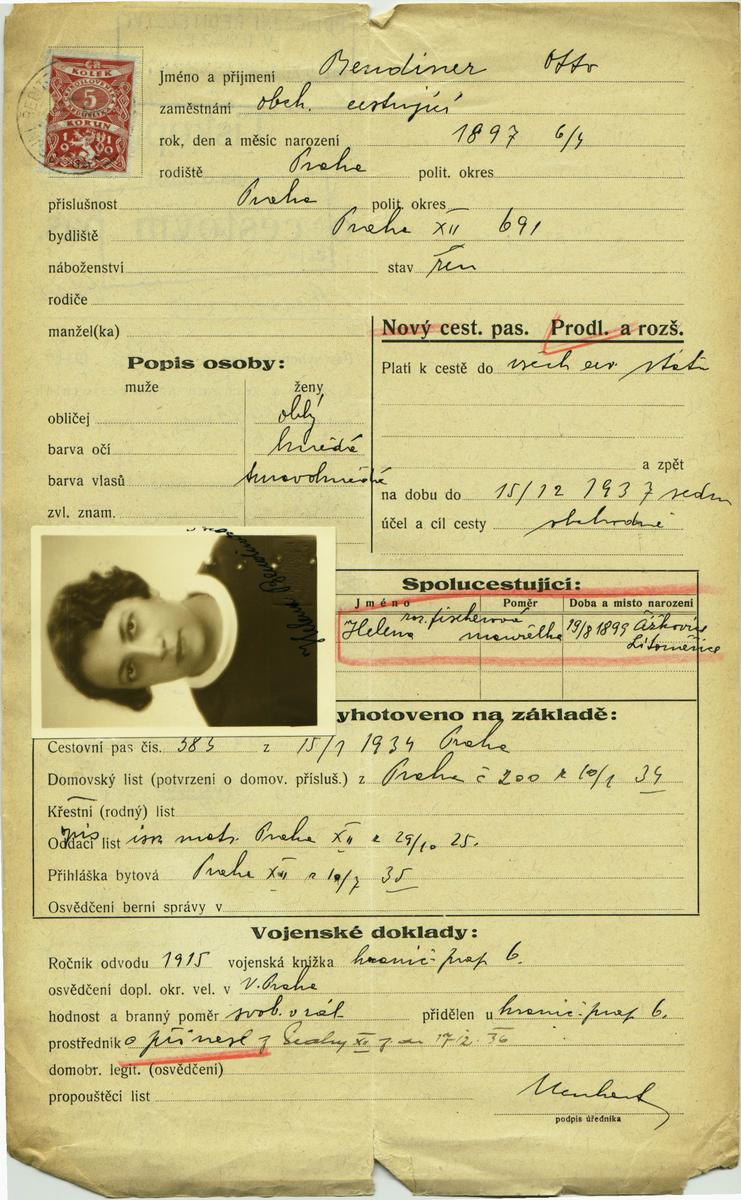 KOLEK
5
KORUN
Jméno a příjmení Bendiner Otto
zaměstnání obch. cestující
rok, den a měsíc narození 1897 6/4
rodiště Praha polit. okres
příslušnost Praha polit. okres
bydliště Praha XII 691
náboženství stav žen
rodiče
manžel(ka)
Nový cest. pas. Prodl. a rozš.
Popis osoby:
Platí k cestě do všech ev států
muže ženy
obličej oblý
barva očí hnědé
barva vlasů tmavohnědé
a zpět
zvl. znam.
na dobu do 15/12 1937
účel a cíl cesty obchodně
Helena Bendinerová
Spolucestující:
Jméno Poměr Doba a místo narození
Helena roz. Fischerová manželka 19/8 1899 Čížkovice
Litoměřice
yhotoveno na základě:
Cestovní pas čís. z 15/1 1934 Praha
Domovský list (potvrzení o domov. přísluš.) z Praha č 200 z 10/1 34
Křestní (rodný) list
Oddací list isr. matr. Praha XII z 29/10 25.
Přihláška bytová Praha XII z 10/7 35
Osvědčení berní správy v
Vojenské doklady:
Ročník odvodu 1915 vojenská knížka hranič. prap 6.
osvědčení dopl. okr. vel. v V. Praha
hodnost a branný poměr svob. v zál. přidělen u hranič. prap 6.
prostředník o přinesl XII 17/12. 36
domobr. legit. (osvědčení)
propouštěcí list
podpis úředníka